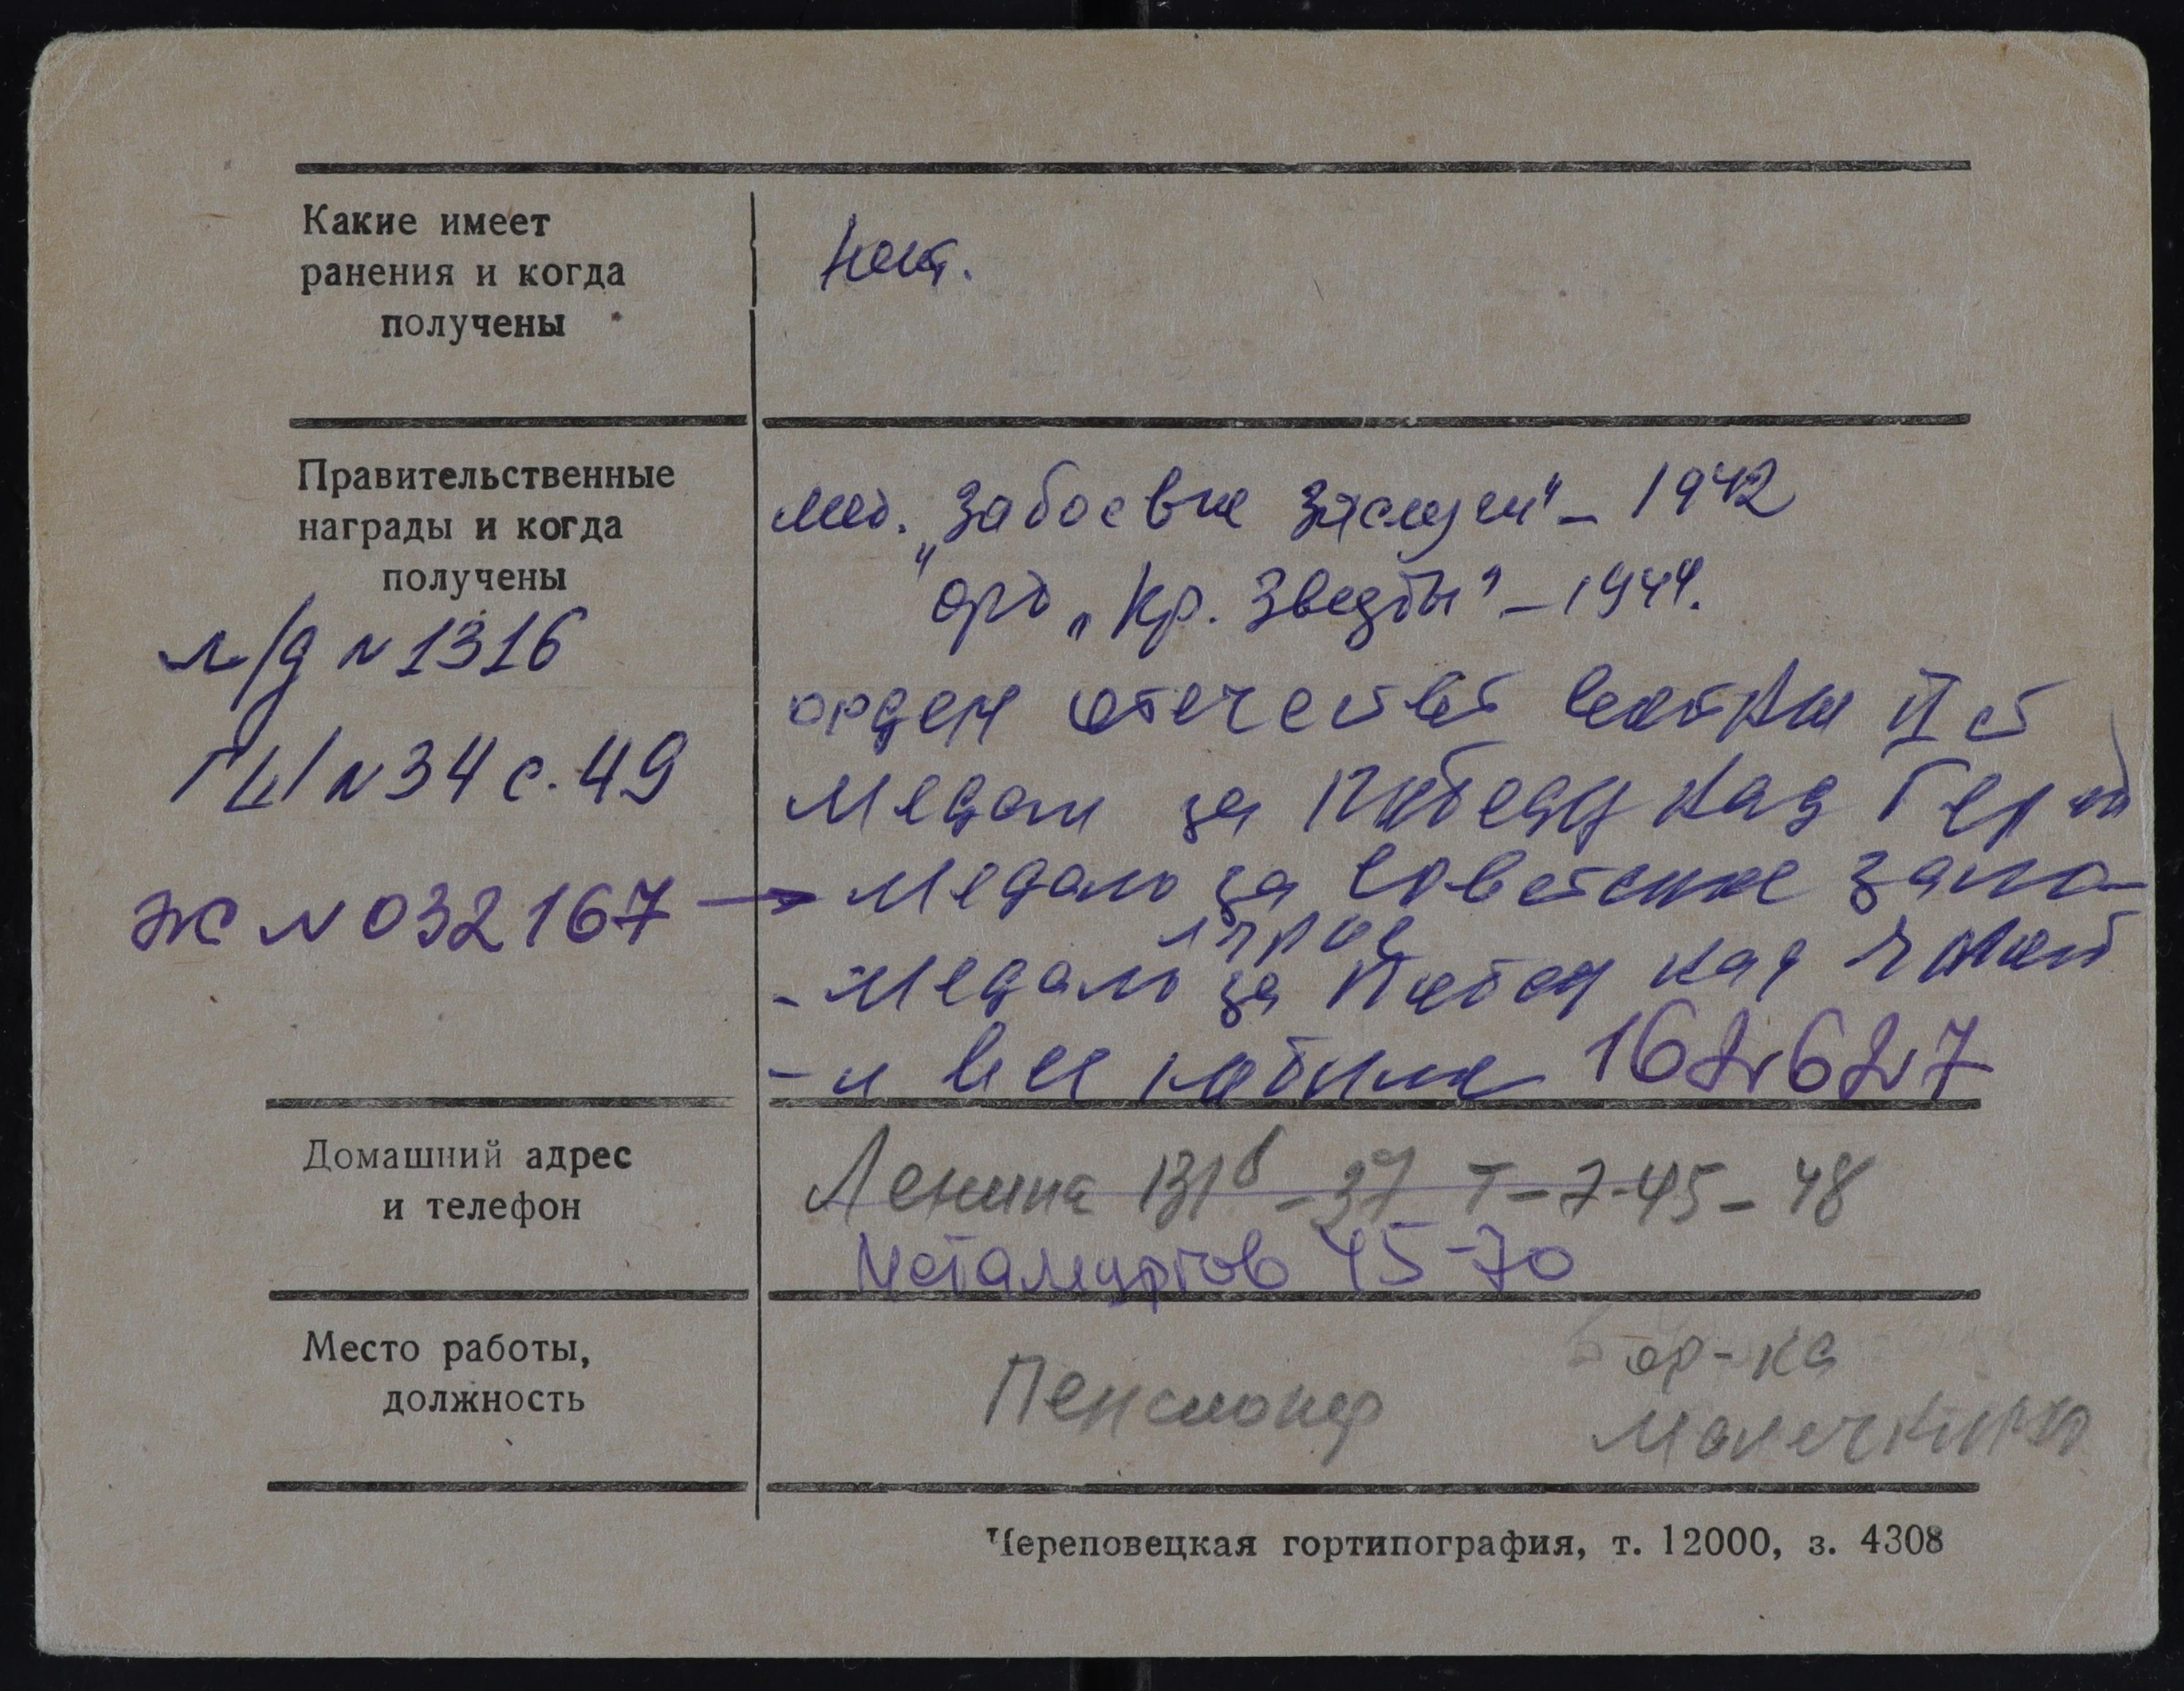 Какие имеет
ранения и когда
получены
нет.
Правительственные
награды и когда
получены
л/д N 1316
ГШ N 34 с. 49
Ж N 032167 →
мед. „За боевые заслуги" – 1942
орд „Кр. Звезды" – 1944.
орден отечеств войны II ст
Медаль за победу над Герм
Медаль за Советские запо-
лярье
- Медаль за Побед над Япон
- и все юбиле 162627
Домашний адрес
и телефон
Ленина 131б – 37 т – 7-45-48
Металлургов 45-70
Место работы,
должность
Пенсионер
ор-ка
Череповецкая гортипография, т. 12000, з. 4308